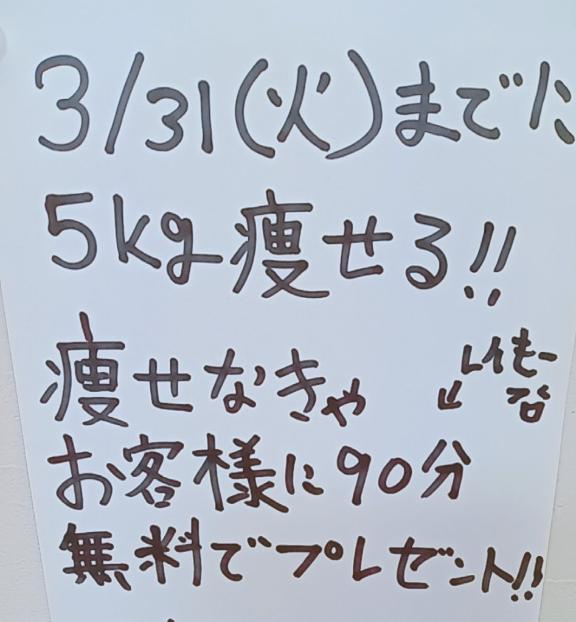 3/31(火)までに
5kg痩せる!!
痩せなきゃ
お客様に90分
無料でプレゼント!!